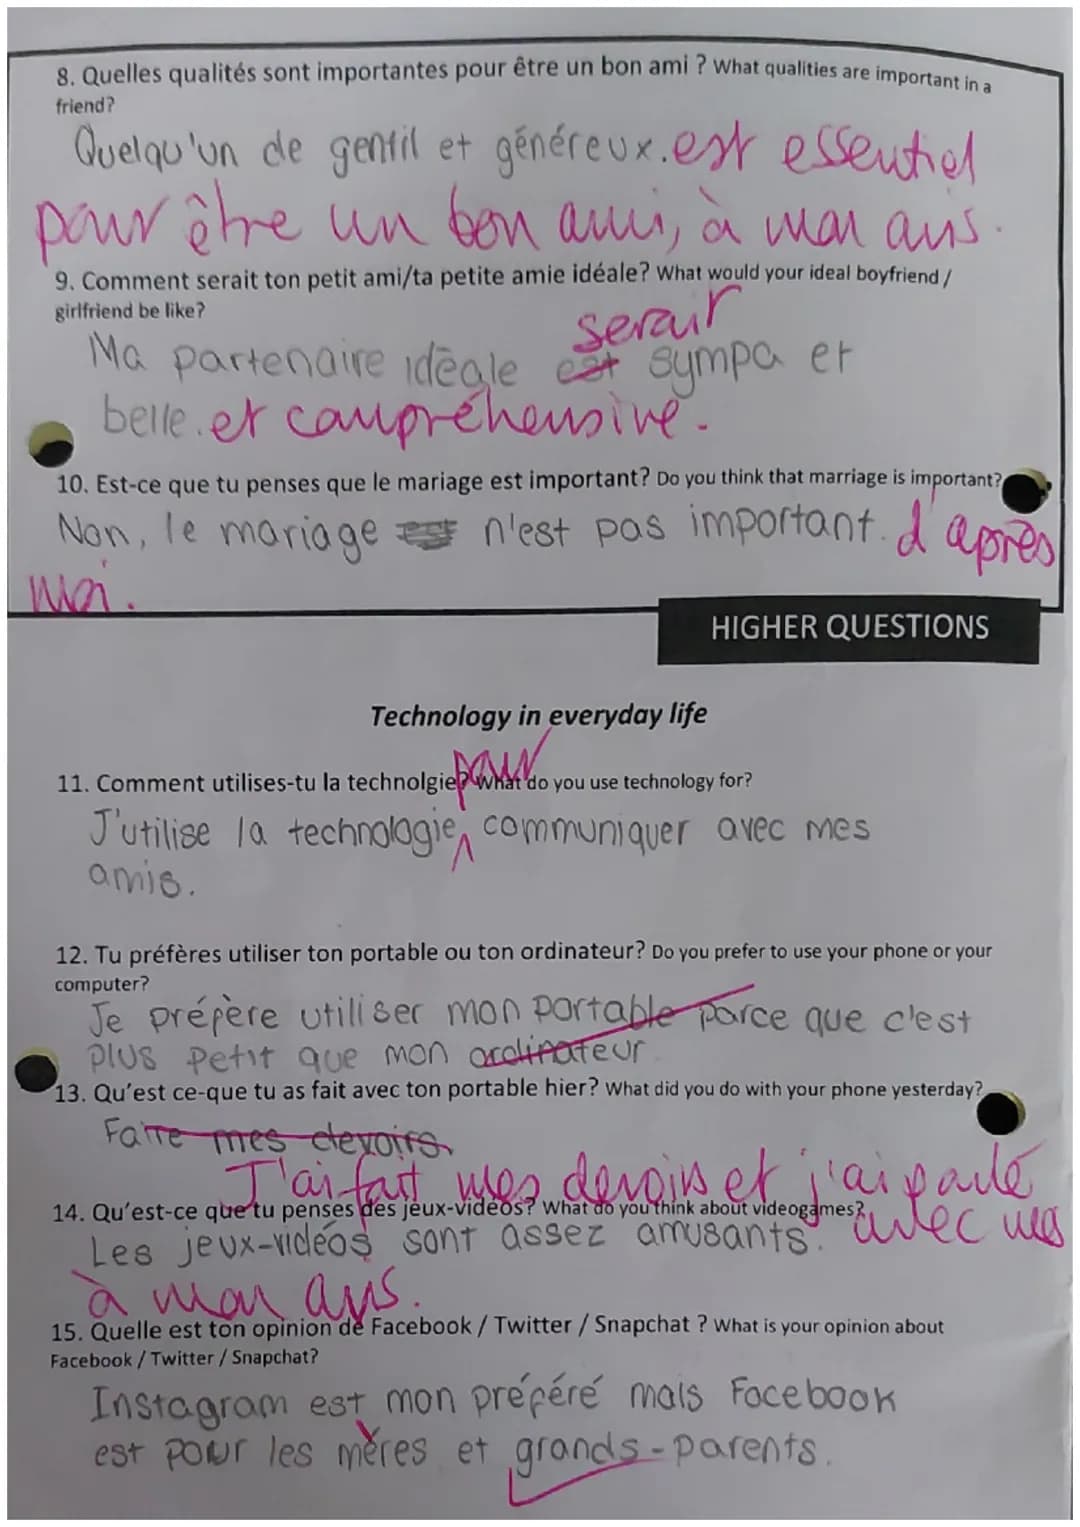 8. Quelles qualités sont importantes pour être un bon ami ? What qualities are important in a
friend?
Quelqu'un de gentil et généreux. est essentiel
pour être un bon ami, à mon avis.
9. Comment serait ton petit ami/ta petite amie idéale? What would your ideal boyfriend /
girlfriend be like?
serait
Ma partenaire idéale est sympa et
belle. et compréhensive.
10. Est-ce que tu penses que le mariage est important? Do you think that marriage is important?
Non, le mariage est n'est pas important. d'après
moi.
HIGHER QUESTIONS
Technology in everyday life
pour
11. Comment utilises-tu la technolgie? What do you use technology for?
J'utilise la technologie, communiquer avec mes
amis.
12. Tu préfères utiliser ton portable ou ton ordinateur? Do you prefer to use your phone or your
computer?
Je préfère utiliser mon portable parce que c'est
plus petit que mon ordinateur
13. Qu'est ce-que tu as fait avec ton portable hier? What did you do with your phone yesterday?
Faire mes devoirs.
J'ai fait mes devoirs et j'ai parlé
14. Qu'est-ce que tu penses des jeux-vidéos? What do you think about videogames?
avec mes
Les jeux-vidéos sont assez amusants.
à mon avis.
15. Quelle est ton opinion de Facebook / Twitter / Snapchat ? What is your opinion about
Facebook / Twitter / Snapchat?
Instagram est mon préféré mais Facebook
est pour les mères et grands-parents.